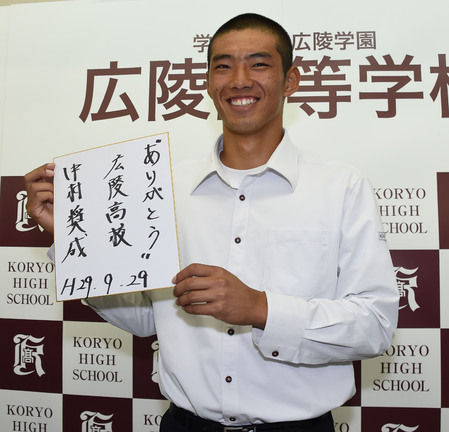 学 広陵学園
広陵 等学校
"ありがとう"
広陵高校
中村奨成
H29.9.29
KORYO
HIGH
SCHOOL
KORYO
HIGH
SCHOOL
KORYO
HIGH
SCHOOL
KORYO
HIGH
SCHOOL
KORYO
HIGH